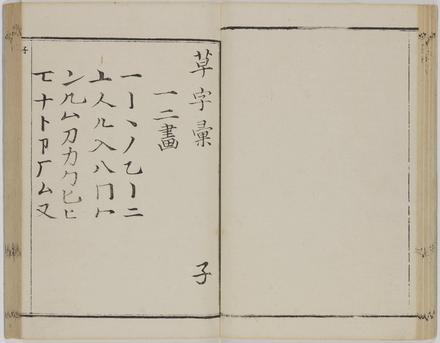 草字彙 子
一二畫
一丨丶丿乙亅二
亠人儿入八冂冖
冫几凵刀力勹匕匚
匸十卜卩厂厶又